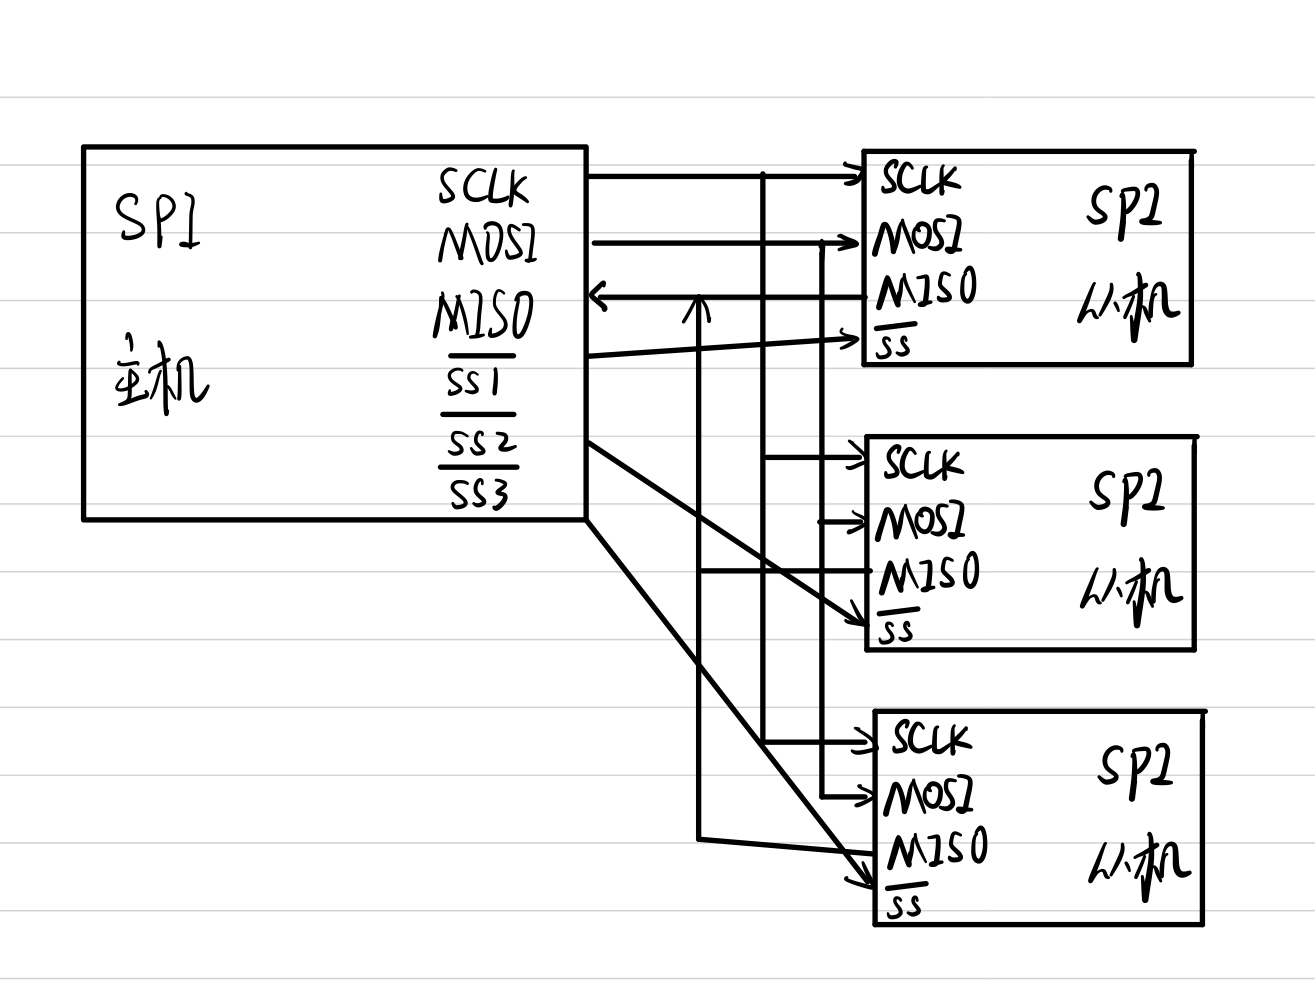 SPI
主机
SCLK
MOSI
MISO
SS1
SS2
SS3
SCLK
MOSI
MISO
SS
SPI
从机
SCLK
MOSI
MISO
SS
SPI
从机
SCLK
MOSI
MISO
SS
SPI
从机